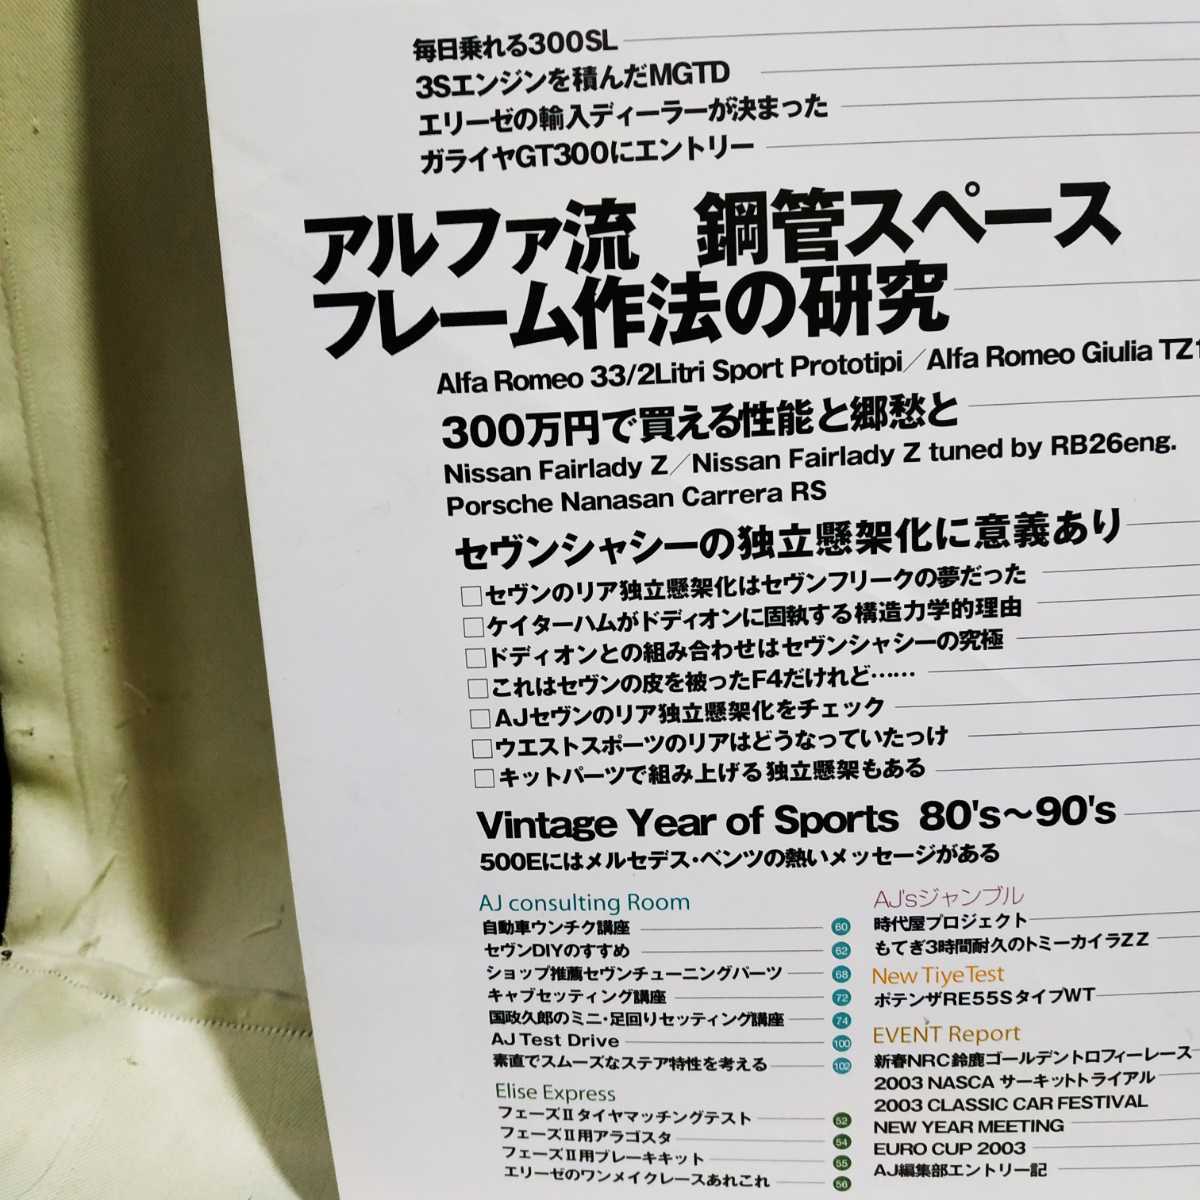 毎日乗れる300SL
3Sエンジンを積んだMGTD
エリーゼの輸入ディーラーが決まった
ガライヤGT300にエントリー
アルファ流 鋼管スペース
フレーム作法の研究
Alfa Romeo 33/2Litri Sport Prototipi／Alfa Romeo Giulia TZ1
300万円で買える性能と郷愁と
Nissan Fairlady Z／Nissan Fairlady Z tuned by RB26eng.
Porsche Nanasan Carrera RS
セヴンシャシーの独立懸架化に意義あり
□セヴンのリア独立懸架化はセヴンフリークの夢だった
□ケイターハムがドディオンに固執する構造力学的理由
□ドディオンとの組み合わせはセヴンシャシーの究極
□これはセヴンの皮を被ったF4だけれど……
□AJセヴンのリア独立懸架化をチェック
□ウエストスポーツのリアはどうなっていたっけ
□キットパーツで組み上げる独立懸架もある
Vintage Year of Sports 80's～90's
500Eにはメルセデス・ベンツの熱いメッセージがある
AJ consulting Room
自動車ウンチク講座 60
セヴンDIYのすすめ 62
ショップ推薦セヴンチューニングパーツ 68
キャブセッティング講座 72
国政久郎のミニ・足回りセッティング講座 74
AJ Test Drive 100
素直でスムーズなステア特性を考える 102
Elise Express
フェーズⅡタイヤマッチングテスト 52
フェーズⅡ用アラゴスタ 54
フェーズⅡ用ブレーキキット 55
エリーゼのワンメイクレースあれこれ 56
AJ'sジャンブル
時代屋プロジェクト
もてぎ3時間耐久のトミーカイラZZ
New Tiye Test
ポテンザRE55SタイプWT
EVENT Report
新春NRC鈴鹿ゴールデントロフィーレース
2003 NASCA サーキットトライアル
2003 CLASSIC CAR FESTIVAL
NEW YEAR MEETING
EURO CUP 2003
AJ編集部エントリー記